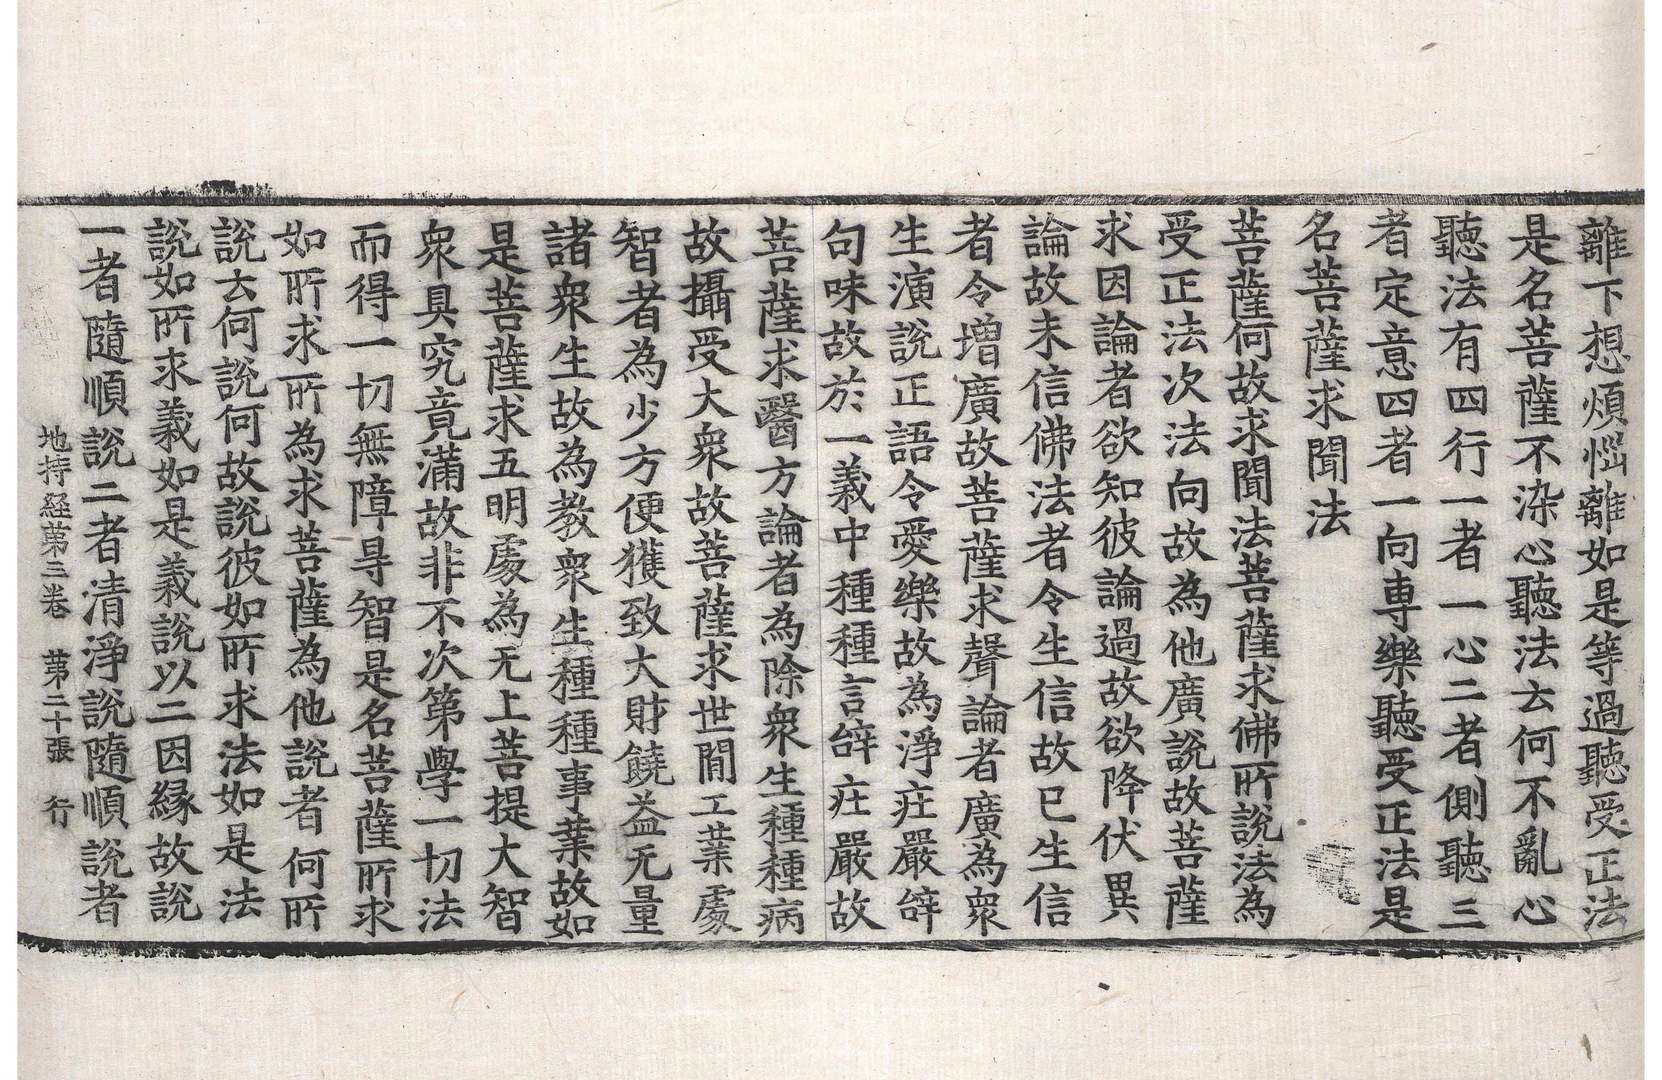 離下想煩惱離如是等過聽受正法
是名菩薩不染心聽法云何不亂心
聽法有四行一者一心二者側聽三
者定意四者一向專樂聽受正法是
名菩薩求聞法
菩薩何故求聞法菩薩求佛所說法為
受正法次法向故為他廣說故菩薩
求因論者欲知彼論過故欲降伏異
論故未信佛法者令生信故已生信
者令增廣故菩薩求聲論者廣為衆
生演說正語令愛樂故為淨庄嚴辝
句味故於一義中種種言辝庄嚴故
菩薩求醫方論者為除衆生種種病
故攝受大衆故菩薩求世間工業處
智者為少方便獲致大財饒益无量
諸衆生故為教衆生種種事業故如
是菩薩求五明處為无上菩提大智
衆具究竟滿故非不次第學一切法
而得一切無障㝵智是名菩薩所求
如所求所為求菩薩為他說者何所
說云何說何故說彼如所求法如是法
說如所求義如是義說以二因緣故說
一者隨順說二者清淨說隨順說者
地持経苐三卷 苐二十張 行